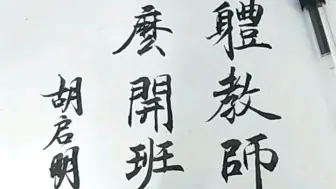 軆教師
麼開班
胡启明